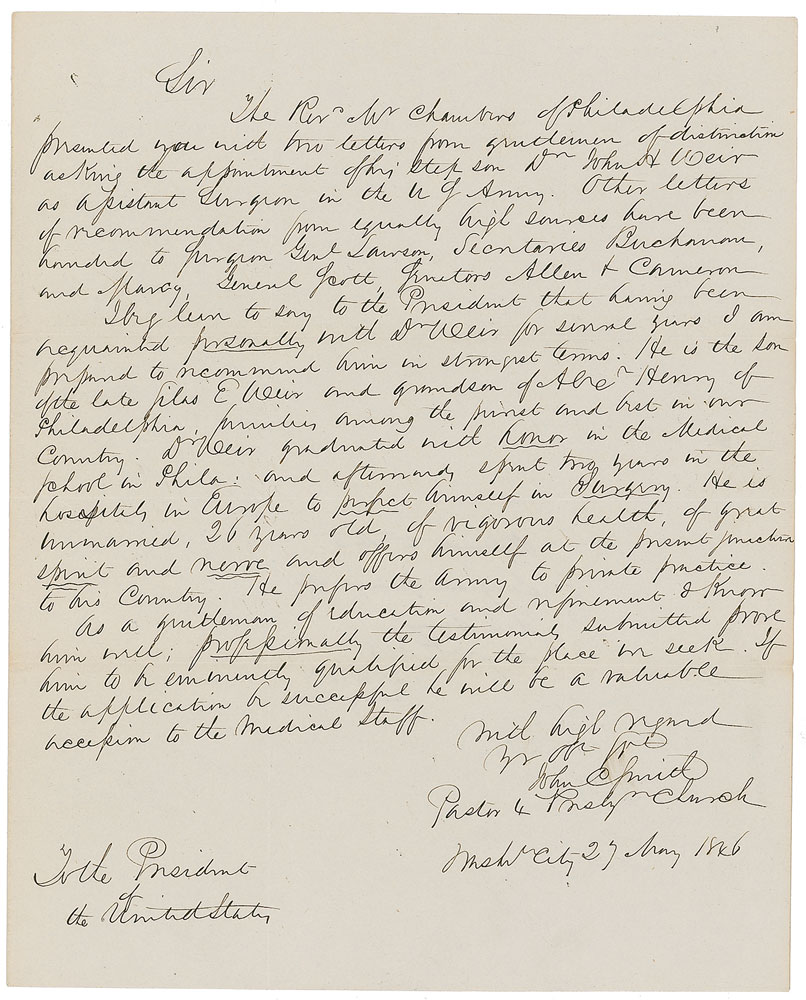 Sir
The Revd Mr Chambers of Philadelphia
presented you with two letters from gentlemen of distinction
asking the appointment of his step son Dr John H Weir
as assistant Surgeon in the U S Army. Other letters
of recommendation from equally high sources have been
handed to Surgeon Genl Lawson, Secretaries Buchanan,
and Marcy, General Scott, Senators Allen & Cameron
I beg leave to say to the President that having been
acquainted personally with Dr Weir for several years I am
prepared to recommend him in strongest terms. He is the son
of the late Silas E Weir and grandson of Alexr Henry of
Philadelphia, families among the purest and best in our
Country. Dr Weir graduated with honor in the Medical
School in Phila: and afterwards spent two years in the
hospitals in Europe to perfect himself in Surgery. He is
unmarried, 26 years old, of vigorous health, of great
spirit and nerve and offers himself at the present junction
to his Country. He prefers the Army to private practice.
As a gentleman of education and refinement I know
him well; professionally the testimonials submitted prove
him to be eminently qualified for the place we seek. If
the application be successful he will be a valuable
accession to the Medical Staff.
With high regard
Yr obt Svt
John C Smith
Pastor 4 Presbyn Church
Washn City 27 May 1846
To the President
of
the United States